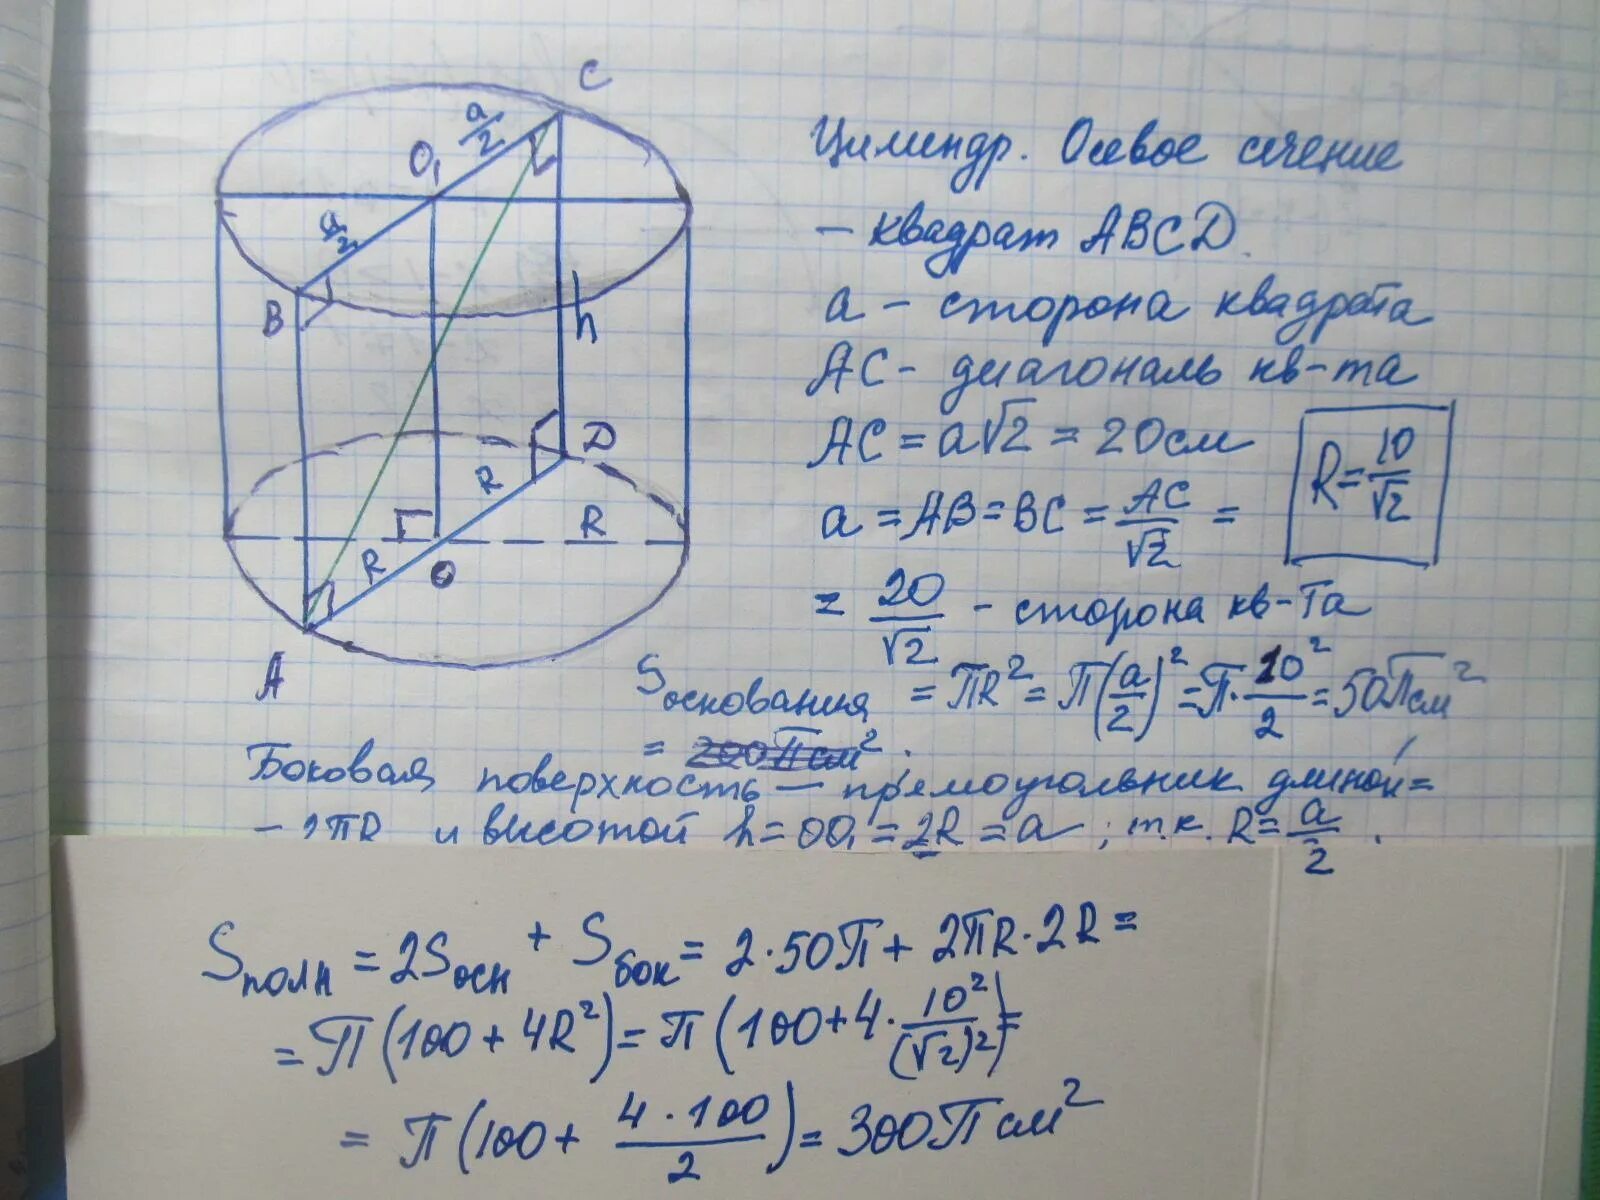 C
a/2
O₁
a/2
B
h
D
R
R
R
O
A
Цилиндр. Осевое сечение
– квадрат ABCD.
a – сторона квадрата
AC – диагональ кв-та
AC = a√2 = 20см
R = 10/√2
a = AB = BC = AC/√2 =
= 20/√2 – сторона кв-та
Sоснования = πR² = π(a/2)² = π · 10²/2 = 50π см²
= 200π см².
Боковая поверхность – прямоугольник длиной =
– 2πR и высотой h = OO₁ = 2R = a ; т.к. R = a/2 .
Sполн = 2Sосн + Sбок = 2·50π + 2πR·2R =
= π(100 + 4R²) = π(100 + 4 · 10²/(√2)²) =
= π(100 + 4·100/2) = 300π см²